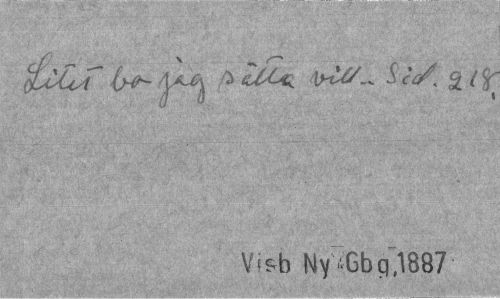 Litet bo jag sätta vill.. Sid. 218.
Visb Ny Gbg, 1887